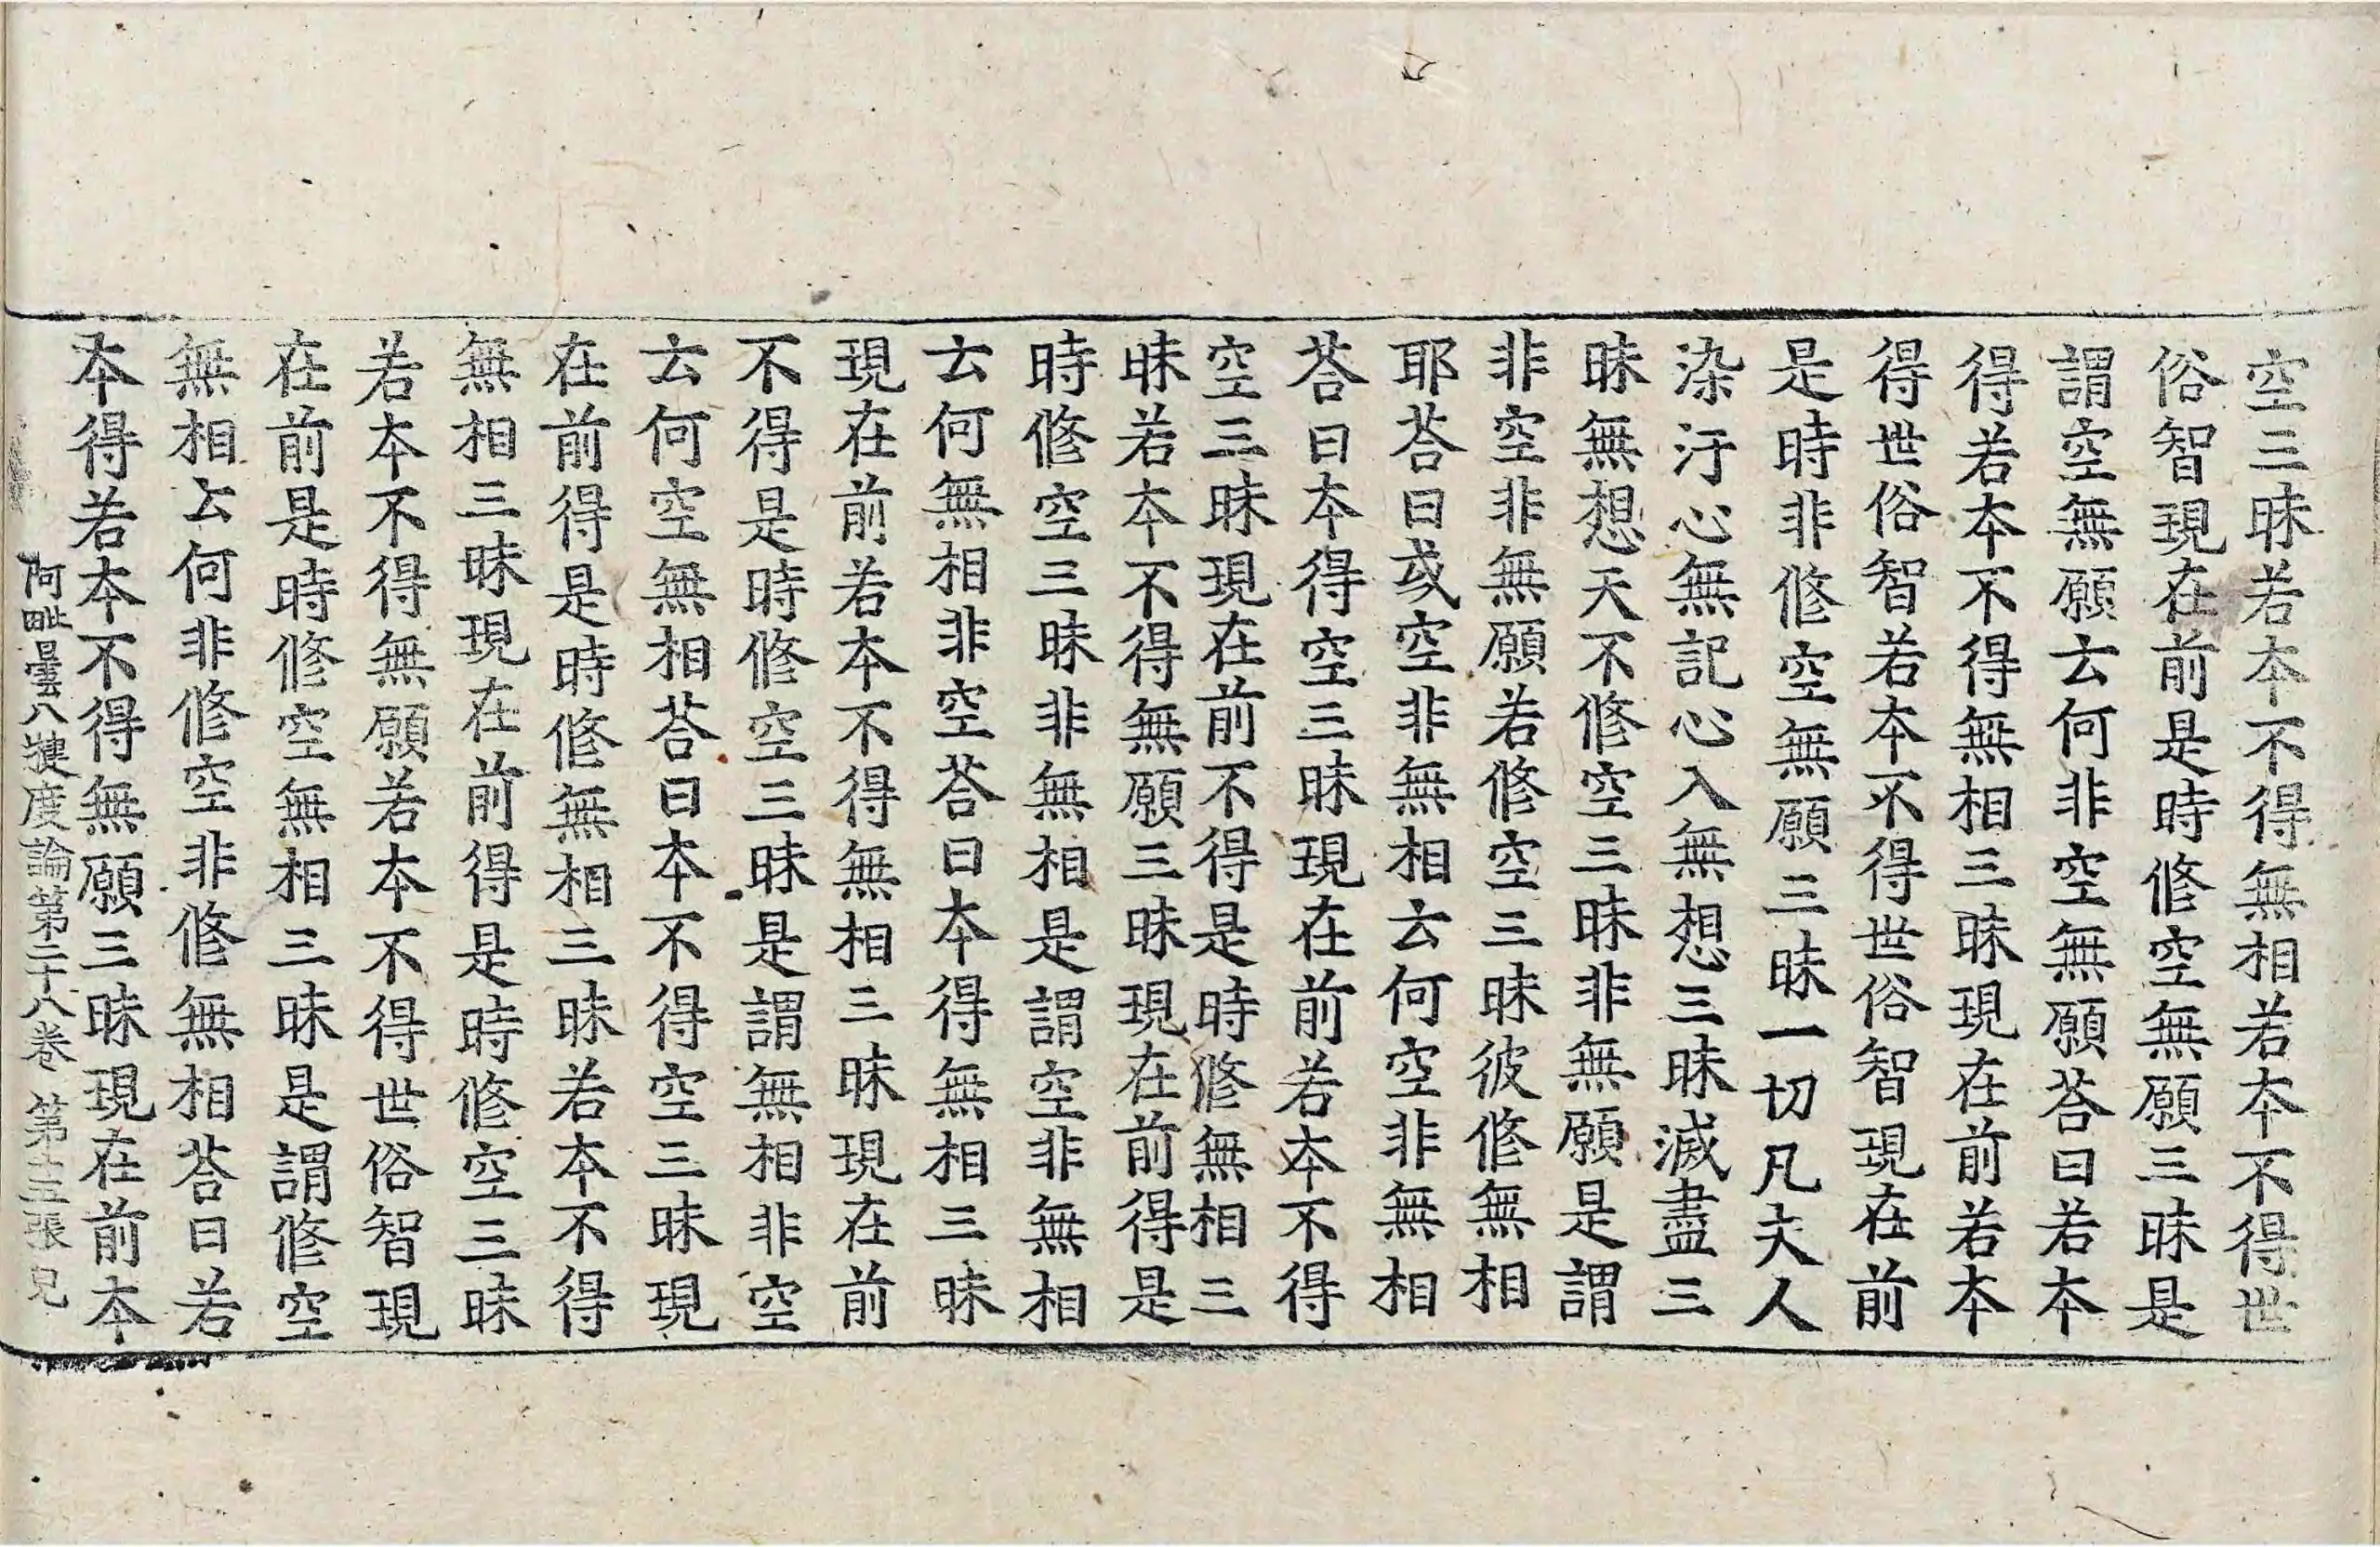 空三昧若本不得無相若本不得世
俗智現在前是時修空無願三昧是
謂空無願云何非空無願荅曰若本
得若本不得無相三昧現在前若本
得世俗智若本不得世俗智現在前
是時非修空無願三昧一切凡夫人
染汙心無記心入無想三昧滅盡三
昧無想天不修空三昧非無願是謂
非空非無願若修空三昧彼修無相
耶荅曰或空非無相云何空非無相
荅曰本得空三昧現在前若本不得
空三昧現在前不得是時修無相三
昧若本不得無願三昧現在前得是
時修空三昧非無相是謂空非無相
云何無相非空荅曰本得無相三昧
現在前若本不得無相三昧現在前
不得是時修空三昧是謂無相非空
云何空無相荅曰本不得空三昧現
在前得是時修無相三昧若本不得
無相三昧現在前得是時修空三昧
若本不得無願若本不得世俗智現
在前是時修空無相三昧是謂修空
無相云何非修空非修無相荅曰若
本得若本不得無願三昧現在前本
阿毗曇八揵度論第二十八卷 第十五張 兄